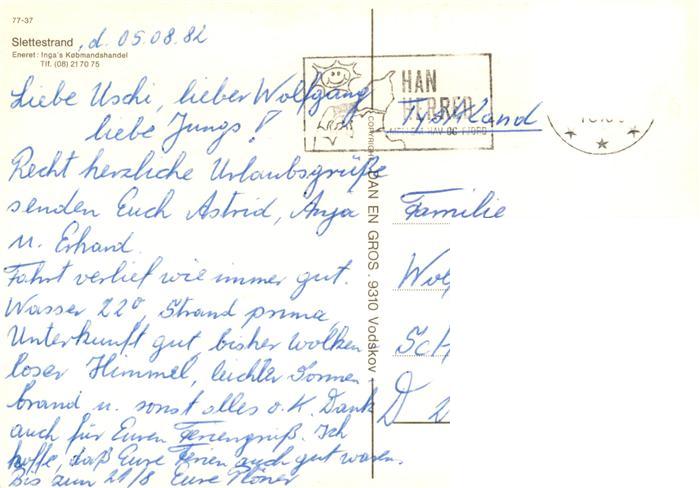 77-37
Slettestrand, d. 05.08.82
Eneret: Inga's Købmandshandel
Tlf. (08) 21 70 75
Liebe Uschi, lieber Wolfgang
liebe Jungs!
Recht herzliche Urlaubsgrüße
senden Euch Astrid, Anja
u. Erhard.
Fahrt verlief wie immer gut.
Wasser 22°, Strand prima,
Unterkunft gut, bisher wolken
loser Himmel, leichter Sonnen
brand u. sonst alles o.K. Dank
auch für Euren Feriengruß. Ich
hoffe, daß Eure Ferien auch gut waren.
Bis zum 21/8 Eure
HAN
HERRED
HAV OG FJORD
COPYRIGHT DAN EN GROS . 9310 Vodskov
Familie
D 2